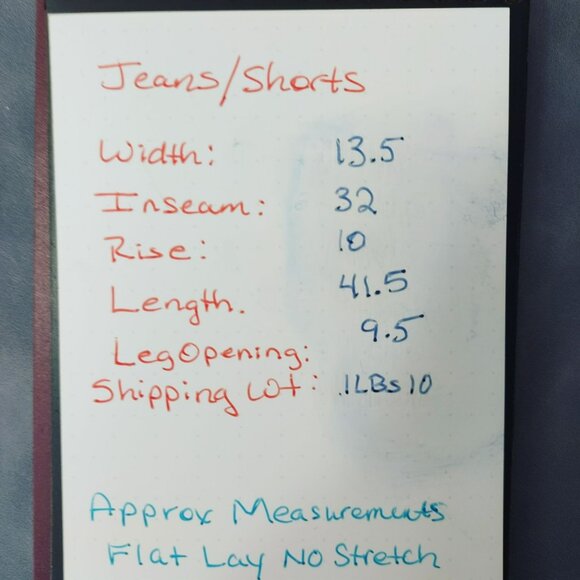 Jeans/Shorts
Width: 13.5
Inseam: 32
Rise: 10
Length. 41.5
Leg Opening: 9.5
Shipping Wt: 1LBs 10
Approx Measurements
Flat Lay No Stretch